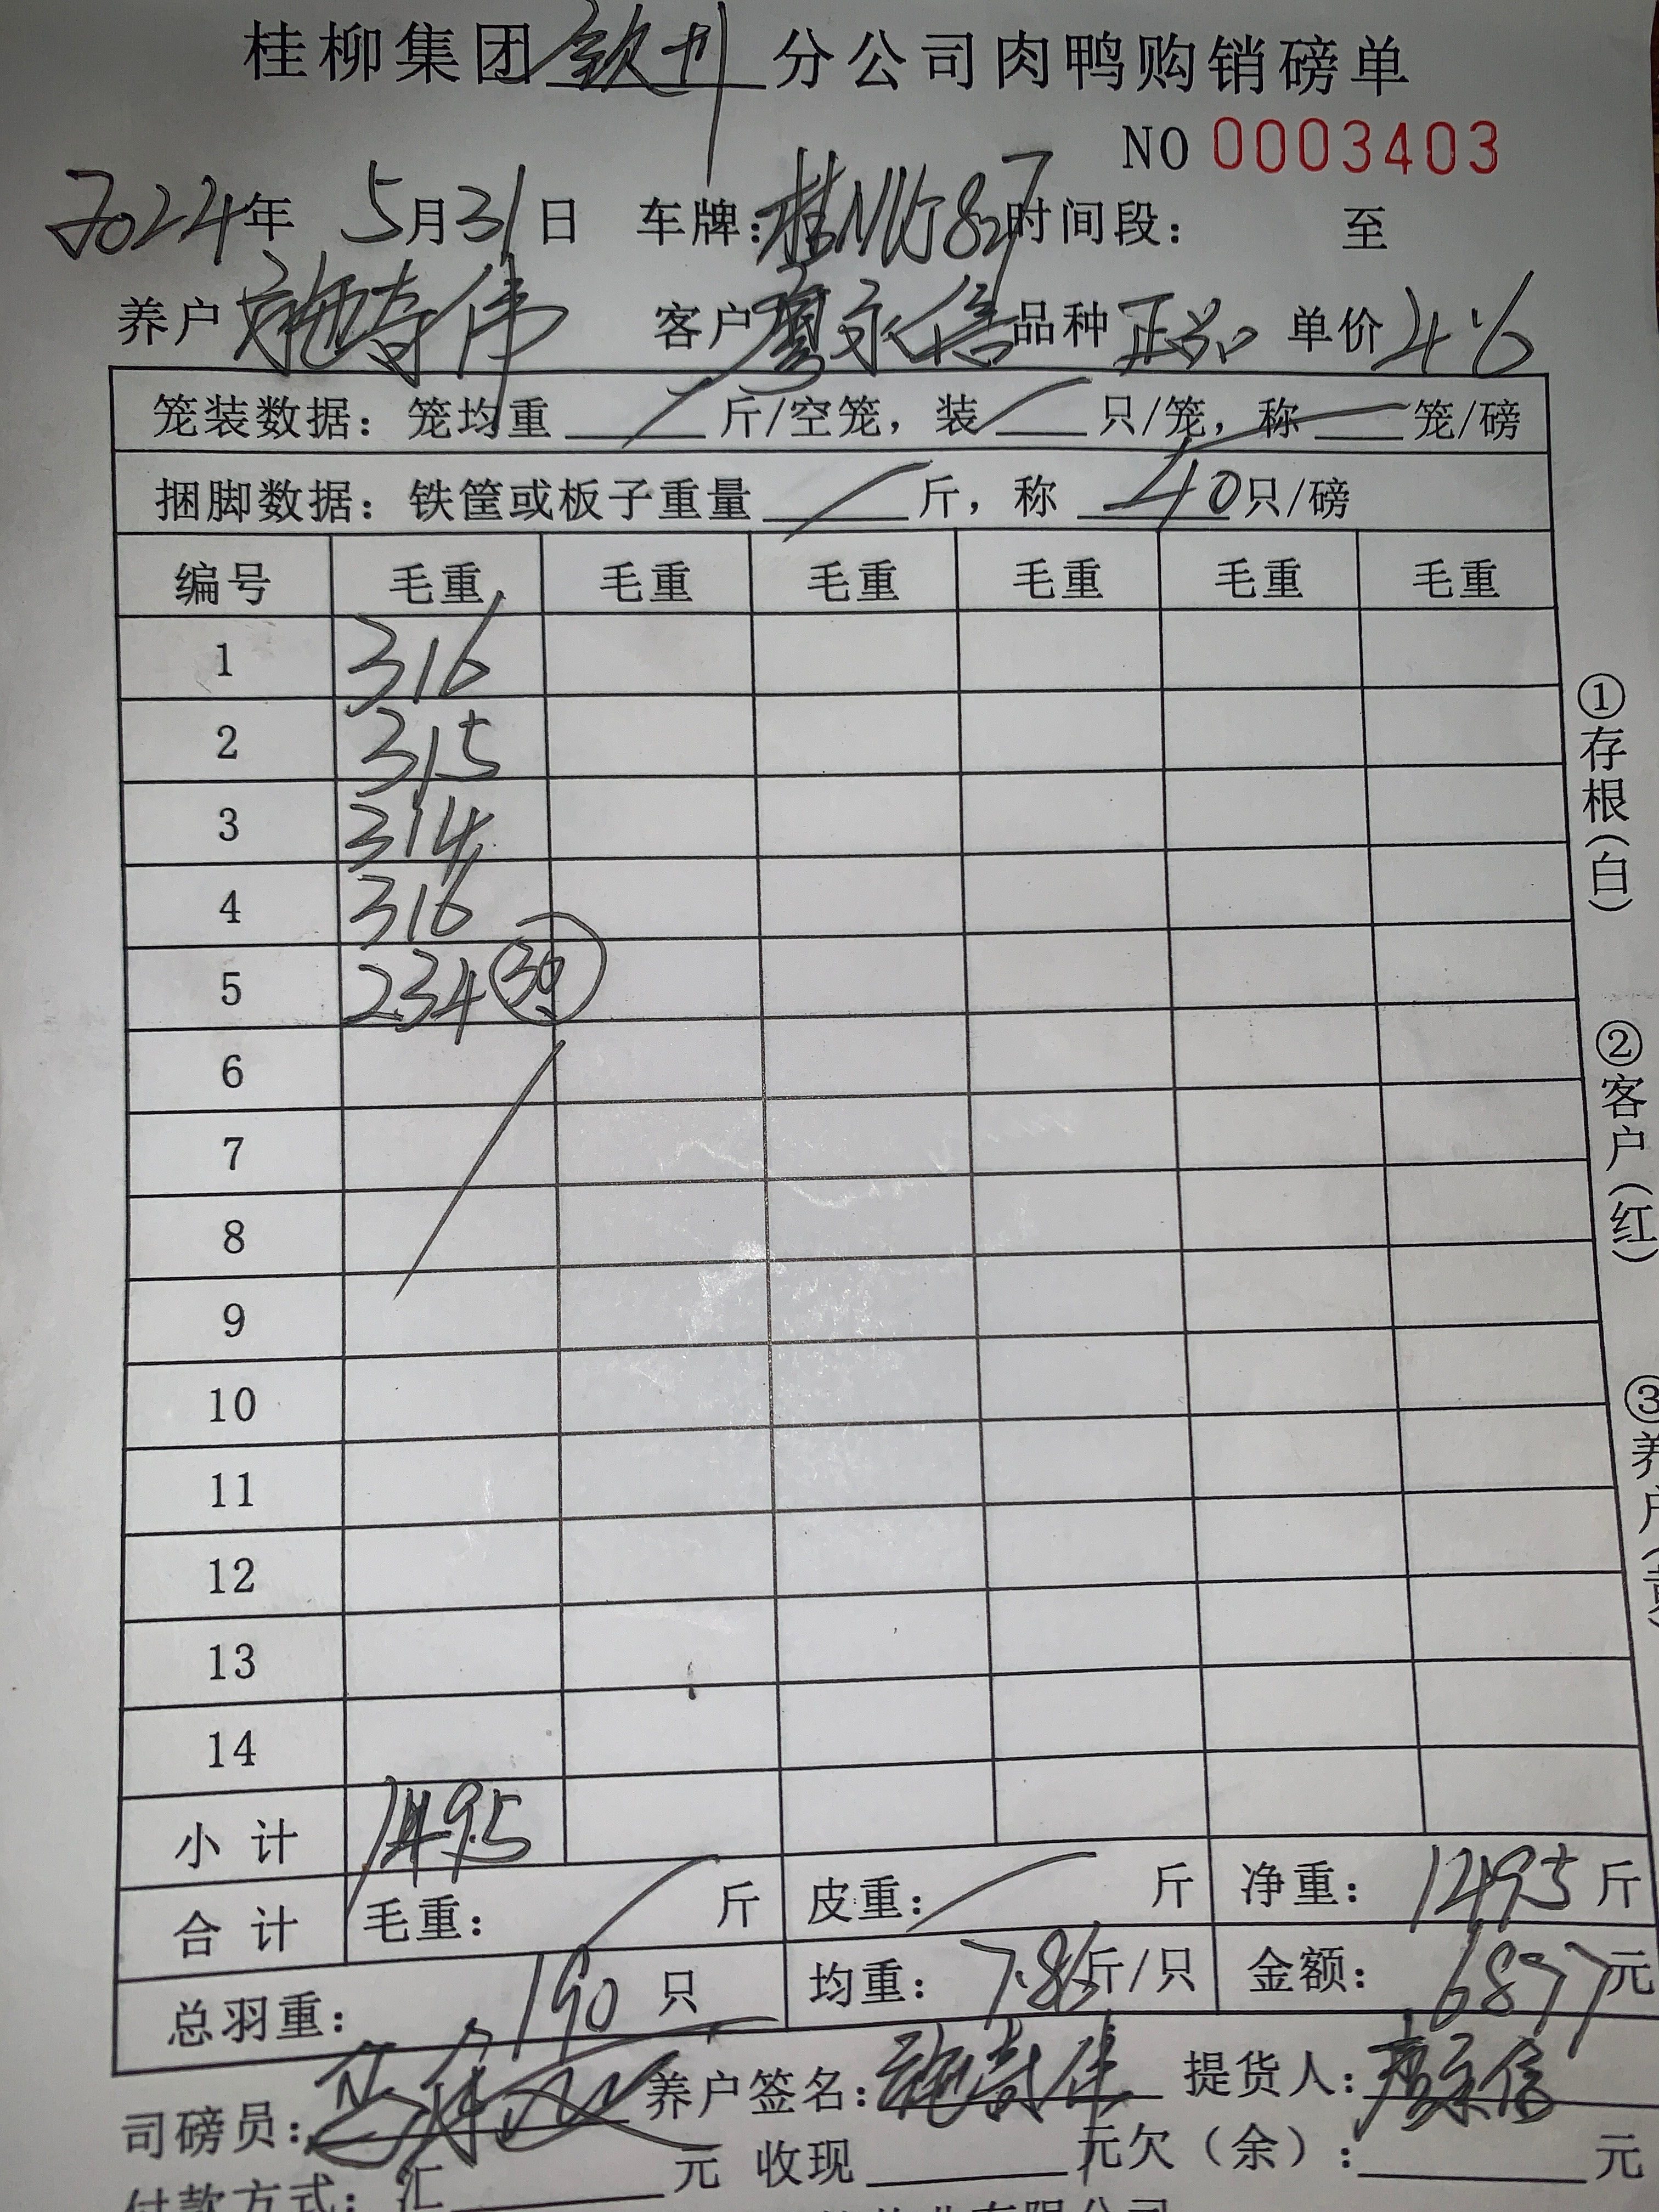 桂柳集团钦州分公司肉鸭购销磅单
NO 0003403
2024年 5月31日 车牌: 时间段: 至
养户 施奇伟 客户 廖永信 品种 正品 单价 4.6
笼装数据: 笼均重 斤/空笼, 装 只/笼, 称 笼/磅
捆脚数据: 铁筐或板子重量 斤, 称 40只/磅
编号 毛重 毛重 毛重 毛重 毛重 毛重
1 316
2 315
3 314
4 316
5 234 30
6
7
8
9
10
11
12
13
14
小计 1495
合计 毛重: 斤 皮重: 斤 净重: 1495斤
总羽重: 190只 均重: 7.86斤/只 金额: 6877元
司磅员: 养户签名: 施奇伟 提货人: 廖永信
付款方式: 汇 元 收现 元欠(余): 元
①存根(白)
②客户(红)
③养户(黄)